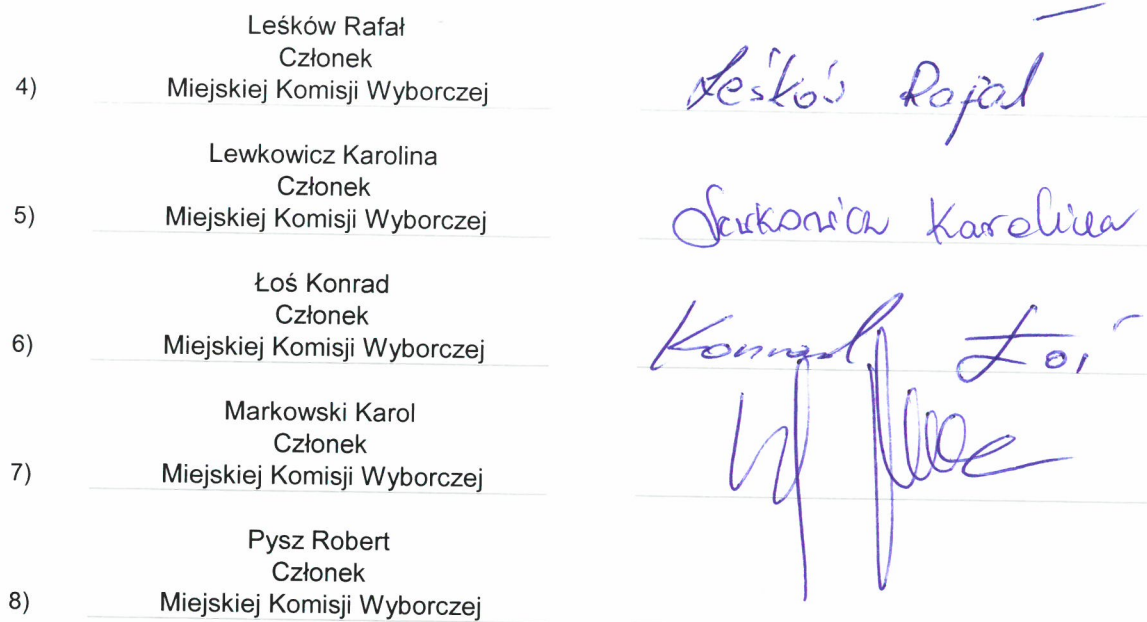 Leśków Rafał
Członek
4) Miejskiej Komisji Wyborczej Leśków Rafał
Lewkowicz Karolina
Członek
5) Miejskiej Komisji Wyborczej Lewkowicz Karolina
Łoś Konrad
Członek
6) Miejskiej Komisji Wyborczej Konrad Łoś
Markowski Karol
Członek
7) Miejskiej Komisji Wyborczej
Pysz Robert
Członek
8) Miejskiej Komisji Wyborczej